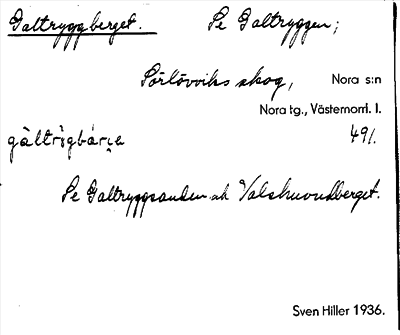 Galtryggberget. Se Galtryggen;
Sörlövviks skog, Nora s:n
Nora tg., Västernorrl. l.
gàltrìgbár̥e 491.
Se Galtryggsanden och Valshuvudberget.
Sven Hiller 1936.